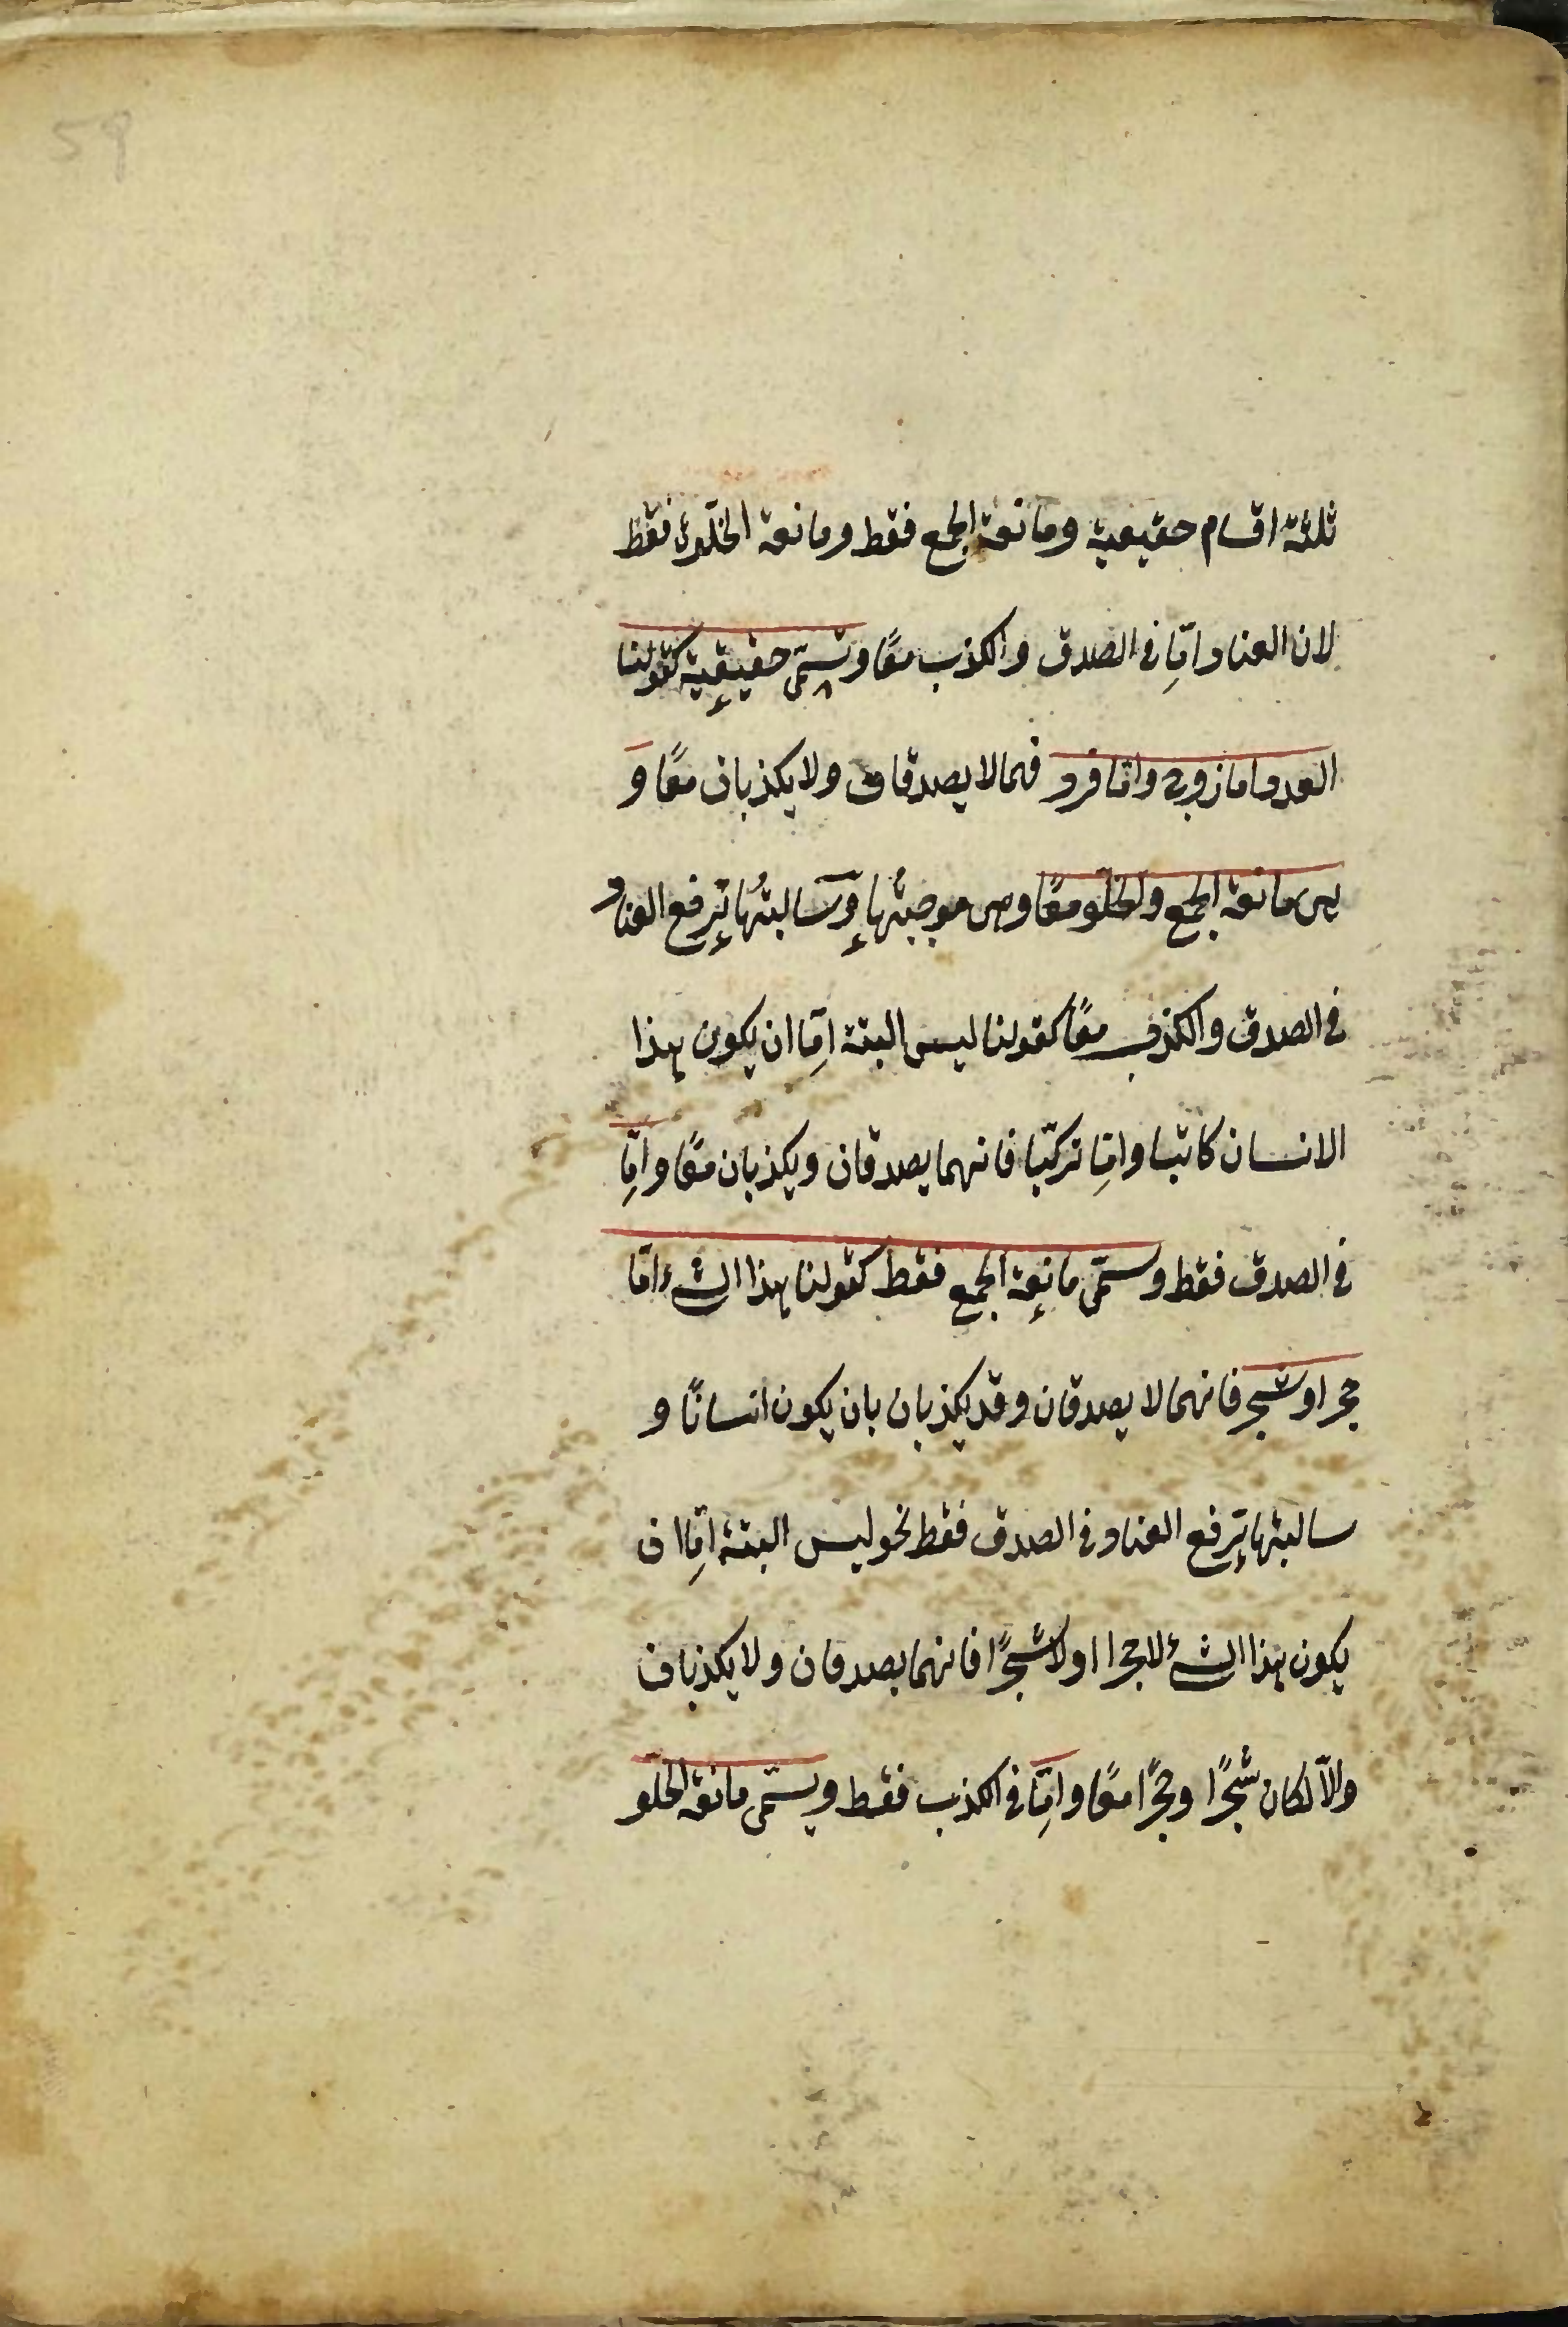 59
ثلثة اقسام حقيقية ومانعة الجمع فقط ومانعة الخلو فقط
لان العناد امّا في الصدق والكذب معًا وتسمّى حقيقية كقولنا
العدد اما زوج وامّا فرد فهما لا يصدقان ولا يكذبان معًا و
هى مانعة الجمع والخلو معًا وهى موجبتها وسالبتُها ترفع العناد
في الصدق والكذب معًا كقولنا ليس البتة امّا ان يكون هذا
الانسان كاتبا وامّا تركيّا فانهما يصدقان ويكذبان معًا وامّا
في الصدق فقط وتسمّى مانعة الجمع فقط كقولنا هذا الشئ امّا
حجر او شجر فانهما لا يصدقان وقد يكذبان بان يكون انسانًا و
سالبتها ترفع العناد في الصدق فقط نحو ليس البتة امّا ان
يكون هذا الشئ لاحجرا اولاشجرًا فانهما يصدقان ولا يكذبان
والّا لكان شجرًا وحجرًا معًا وامّا في الكذب فقط ويسمّى مانعة الخلو